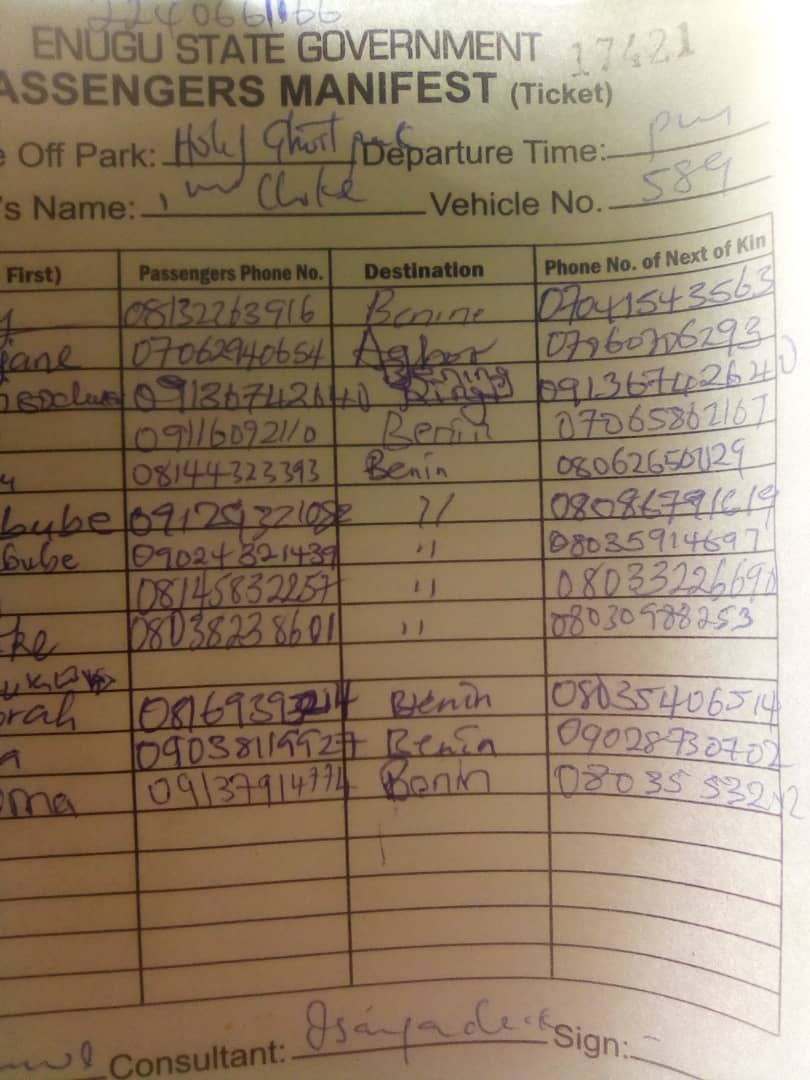 2240661166
ENUGU STATE GOVERNMENT 17421
ASSENGERS MANIFEST (Ticket)
e Off Park: Holy Ghost park Departure Time: pm
's Name: Choke Vehicle No. 589
First) Passengers Phone No. Destination Phone No. of Next of Kin
y 08132263916 Benine 07041543563
jane 07062940654 Agbor
09136742640 09136742640
09116092110 Benin 07065862167
y 08144323393 Benin 08062650129
bube 09129321082 " 08086791619
bube 09024321439 " 08035914697
08145832257 " 08033226690
ke 08038238601 " 08030988253
orah Benin 08035406514
a 09038119927 Benin 09028730702
oma 09137914774 Benin
Consultant: Sign: